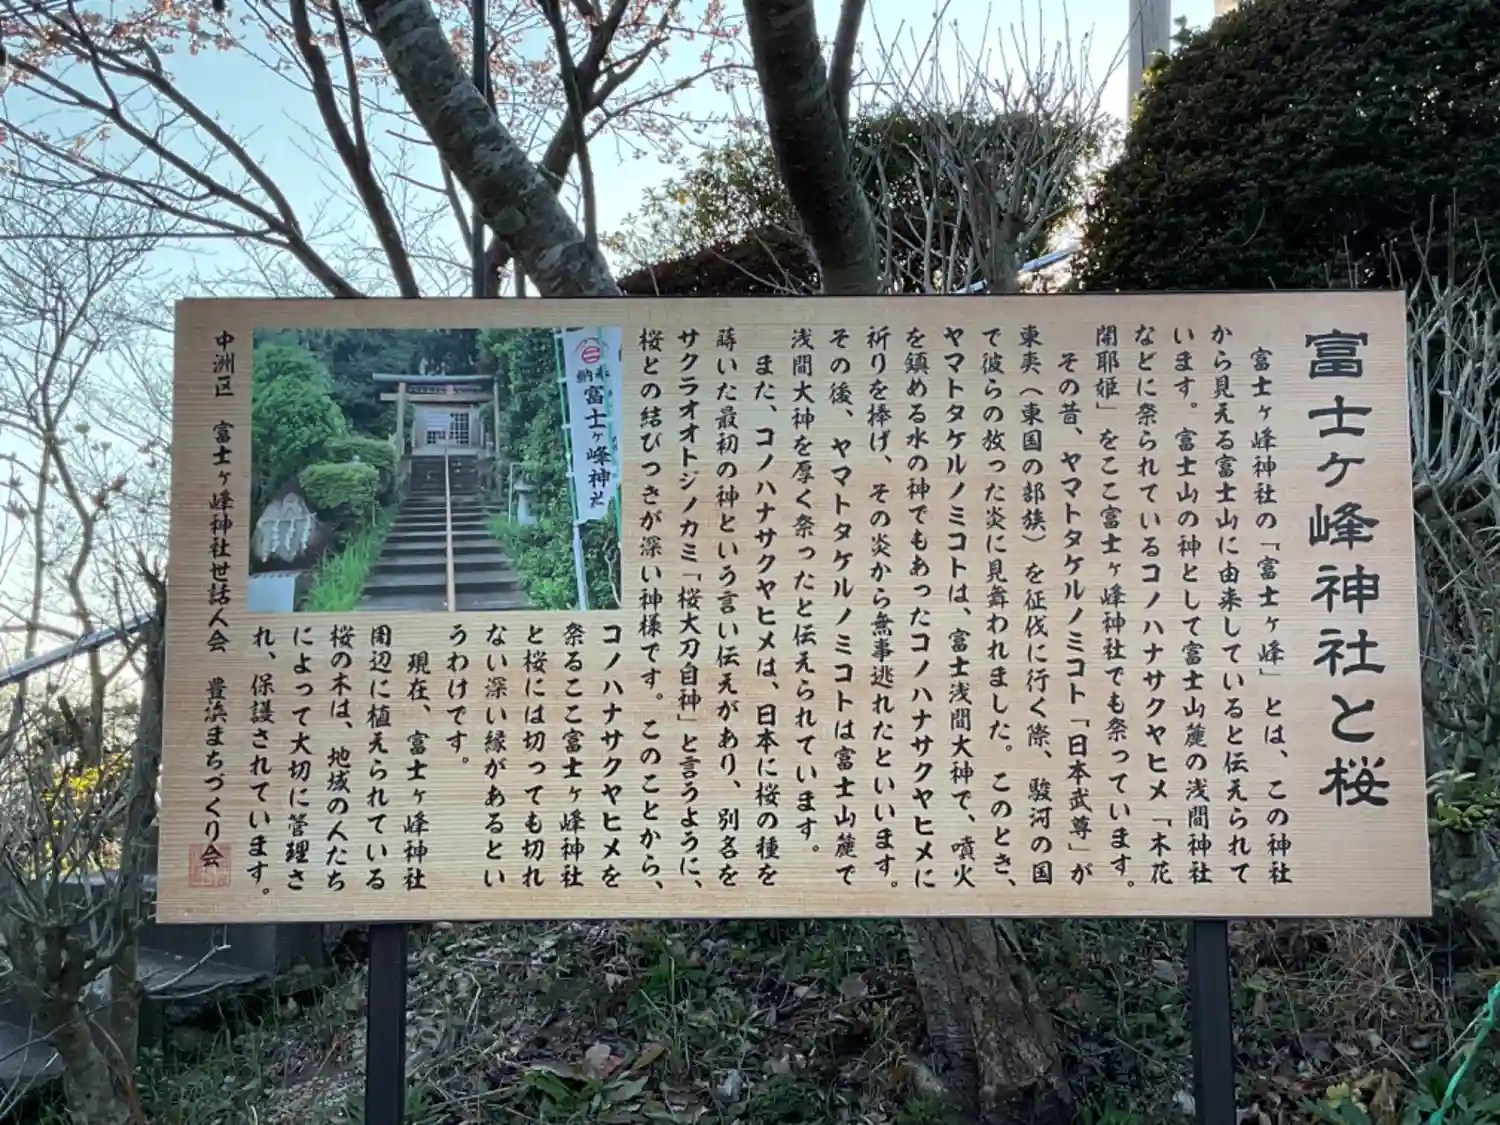 富士ヶ峰神社と桜
富士ヶ峰神社の「富士ヶ峰」とは、この神社
から見える富士山に由来していると伝えられて
います。富士山の神として富士山麓の浅間神社
などに祭られているコノハナサクヤヒメ「木花
開耶姫」をここ富士ヶ峰神社でも祭っています。
その昔、ヤマトタケルノミコト「日本武尊」が
東夷(東国の部族)を征伐に行く際、駿河の国
で彼らの放った炎に見舞われました。このとき、
ヤマトタケルノミコトは、富士浅間大神で、噴火
を鎮める水の神でもあったコノハナサクヤヒメに
祈りを捧げ、その炎から無事逃れたといいます。
その後、ヤマトタケルノミコトは富士山麓で
浅間大神を厚く祭ったと伝えられています。
また、コノハナサクヤヒメは、日本に桜の種を
蒔いた最初の神という言い伝えがあり、別名を
サクラオオトジノカミ「桜大刀自神」と言うように、
桜との結びつきが深い神様です。このことから、
コノハナサクヤヒメを
祭るここ富士ヶ峰神社
と桜には切っても切れ
ない深い縁があるとい
うわけです。
現在、富士ヶ峰神社
周辺に植えられている
桜の木は、地域の人たち
によって大切に管理さ
れ、保護されています。
奉納
富士ヶ峰神社
中洲区 富士ヶ峰神社世話人会 豊浜まちづくり会